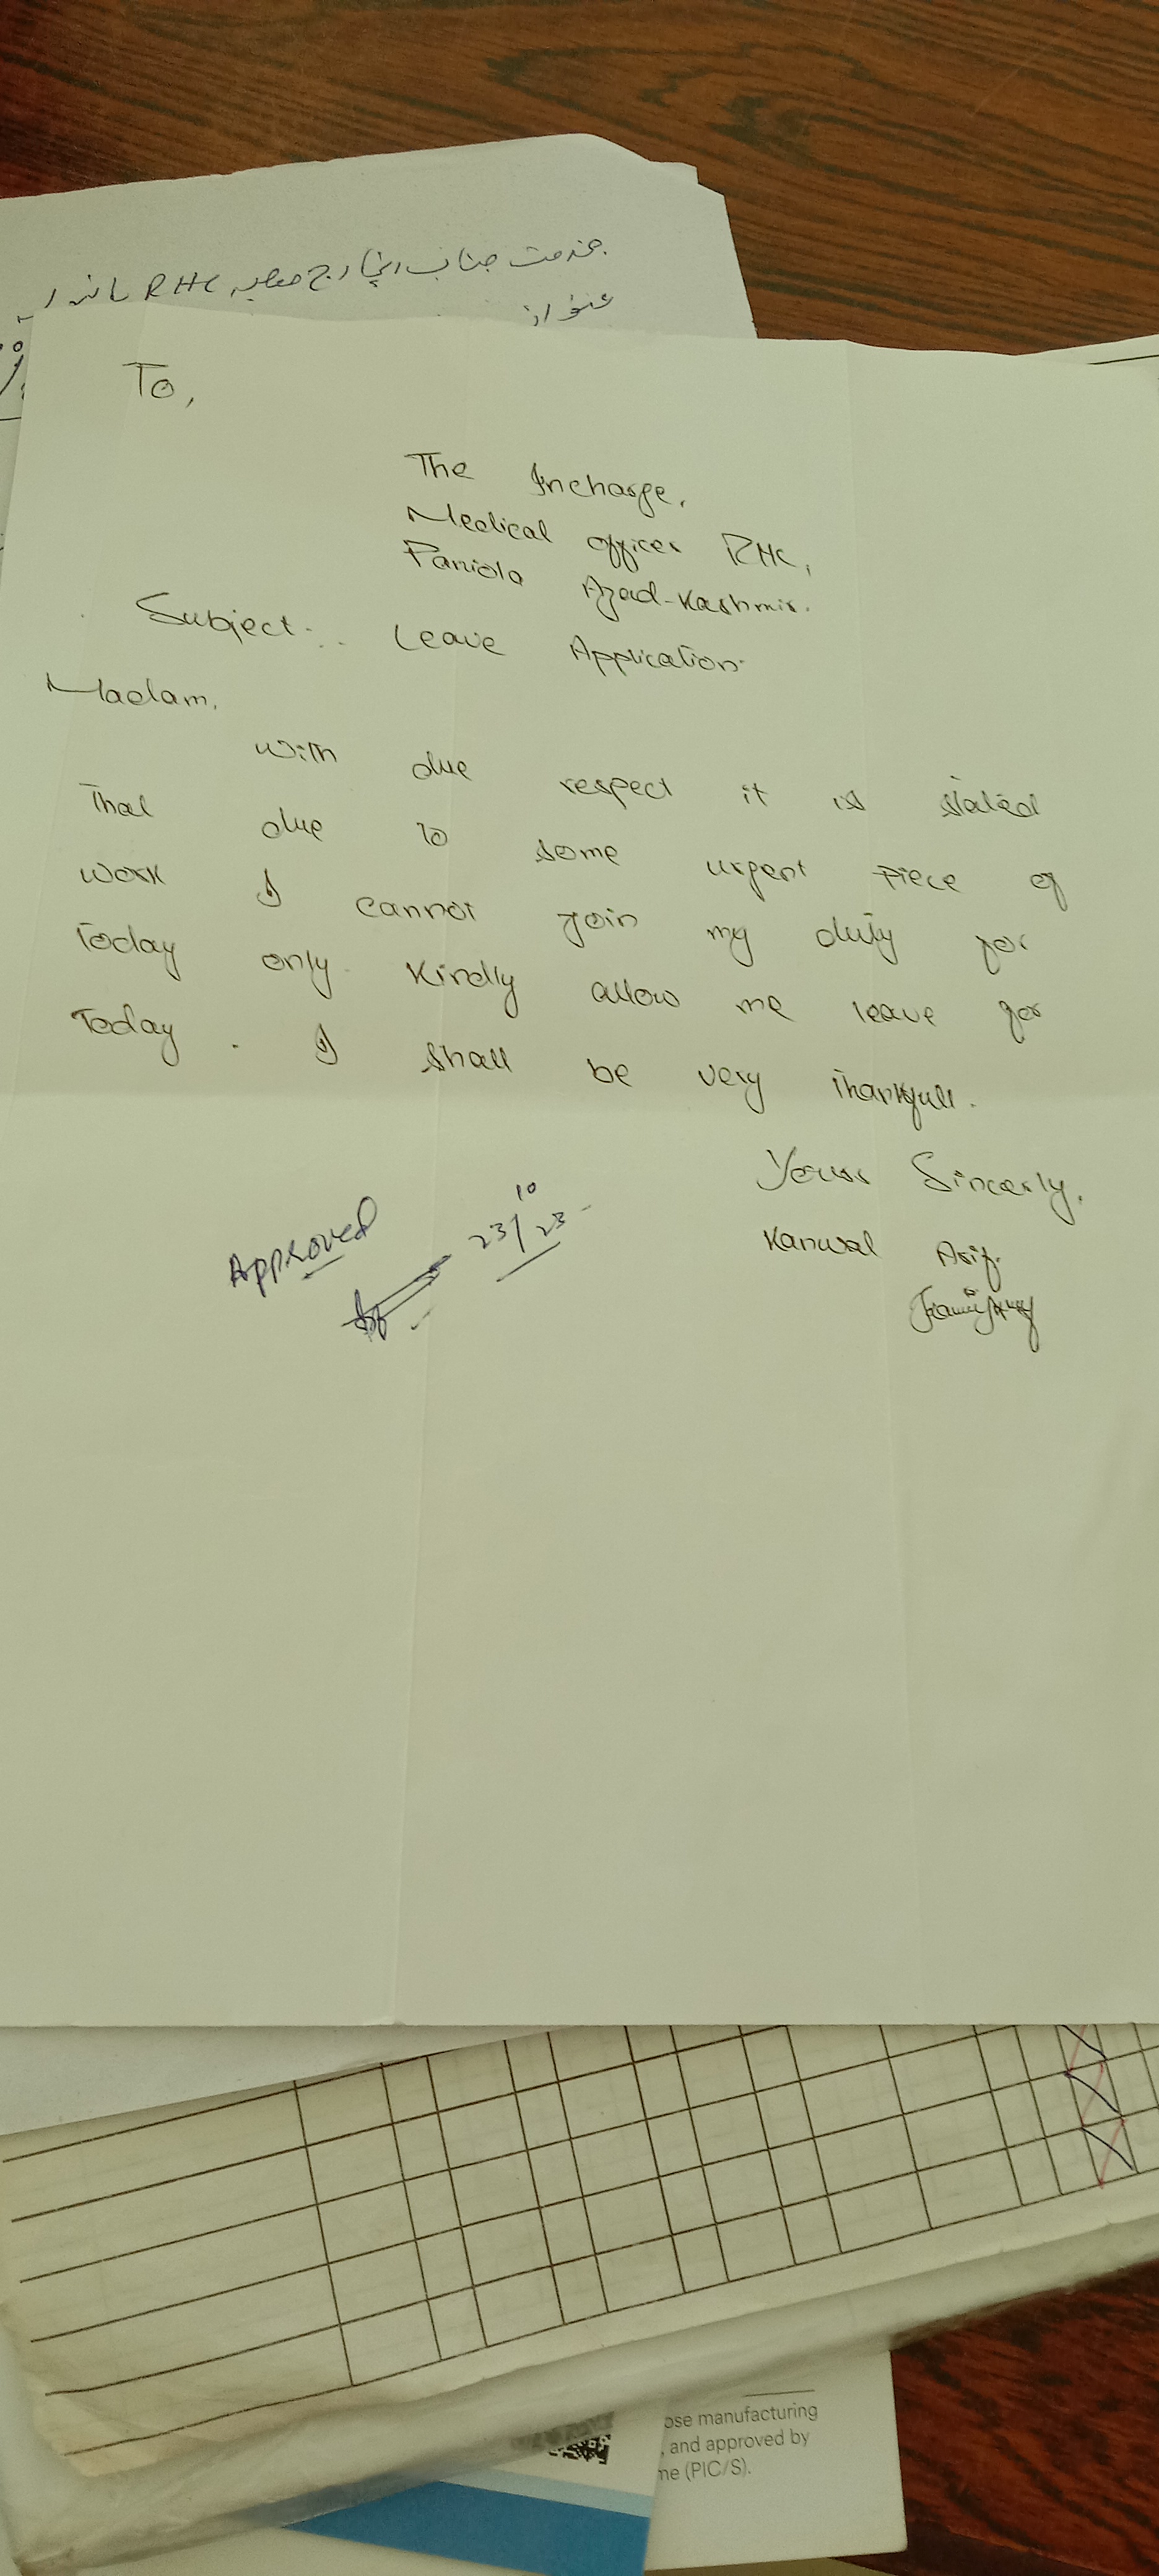 بخدمت جناب انچارج صاحبہ RHC
عنوان:
To,
The Incharge,
Medical officer RHC,
Paniola Azad-Kashmir.
Subject:. Leave Application.
Madam,
with due respect it is stated
That due to some urgent piece of
work I cannot join my duty for
Today only. Kindly allow me leave for
Today. I shall be very thankfull.
Yours Sincerly,
Kanwal Asif.
Approved
23/10 23
ose manufacturing
, and approved by
me (PIC/S).